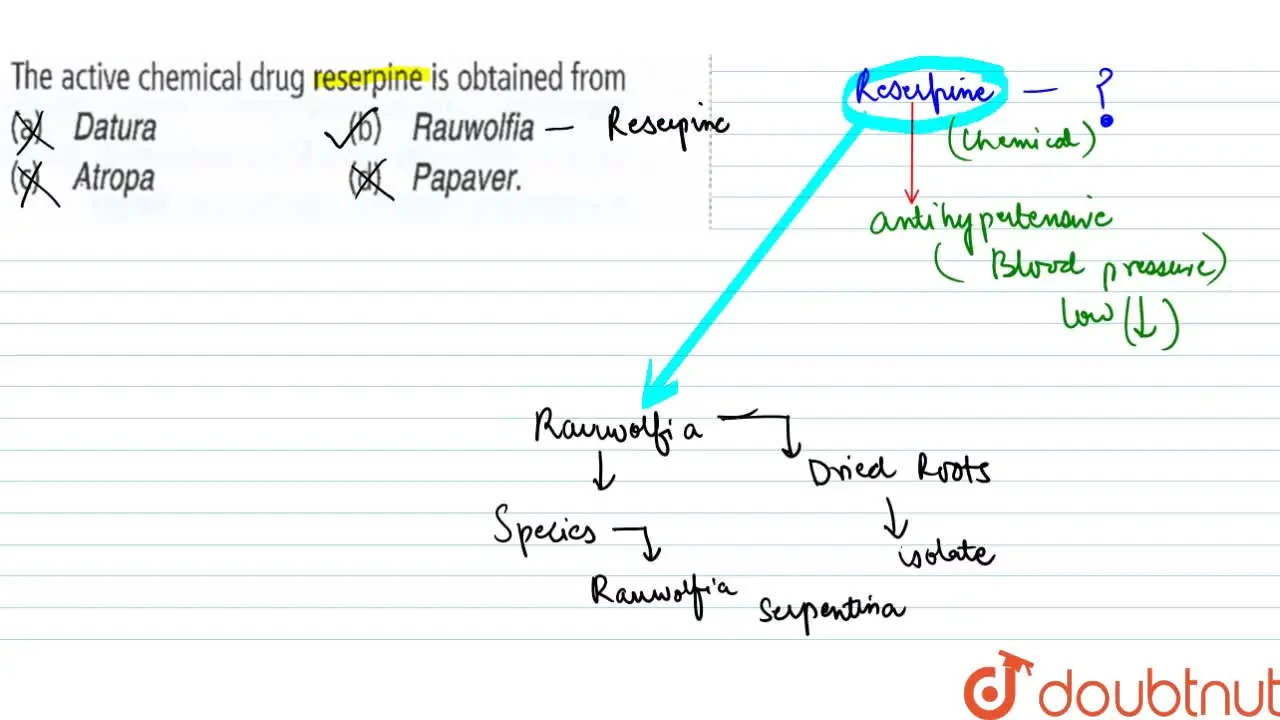 The active chemical drug reserpine is obtained from
(a) Datura
(b) Rauwolfia — Reserpine
(c) Atropa
(d) Papaver.
Reserpine — ?
(Chemical)
antihypertensive
(Blood pressure)
low (↓)
Rauwolfia
Dried Roots
isolate
Species
Rauwolfia Serpentina
doubtnut